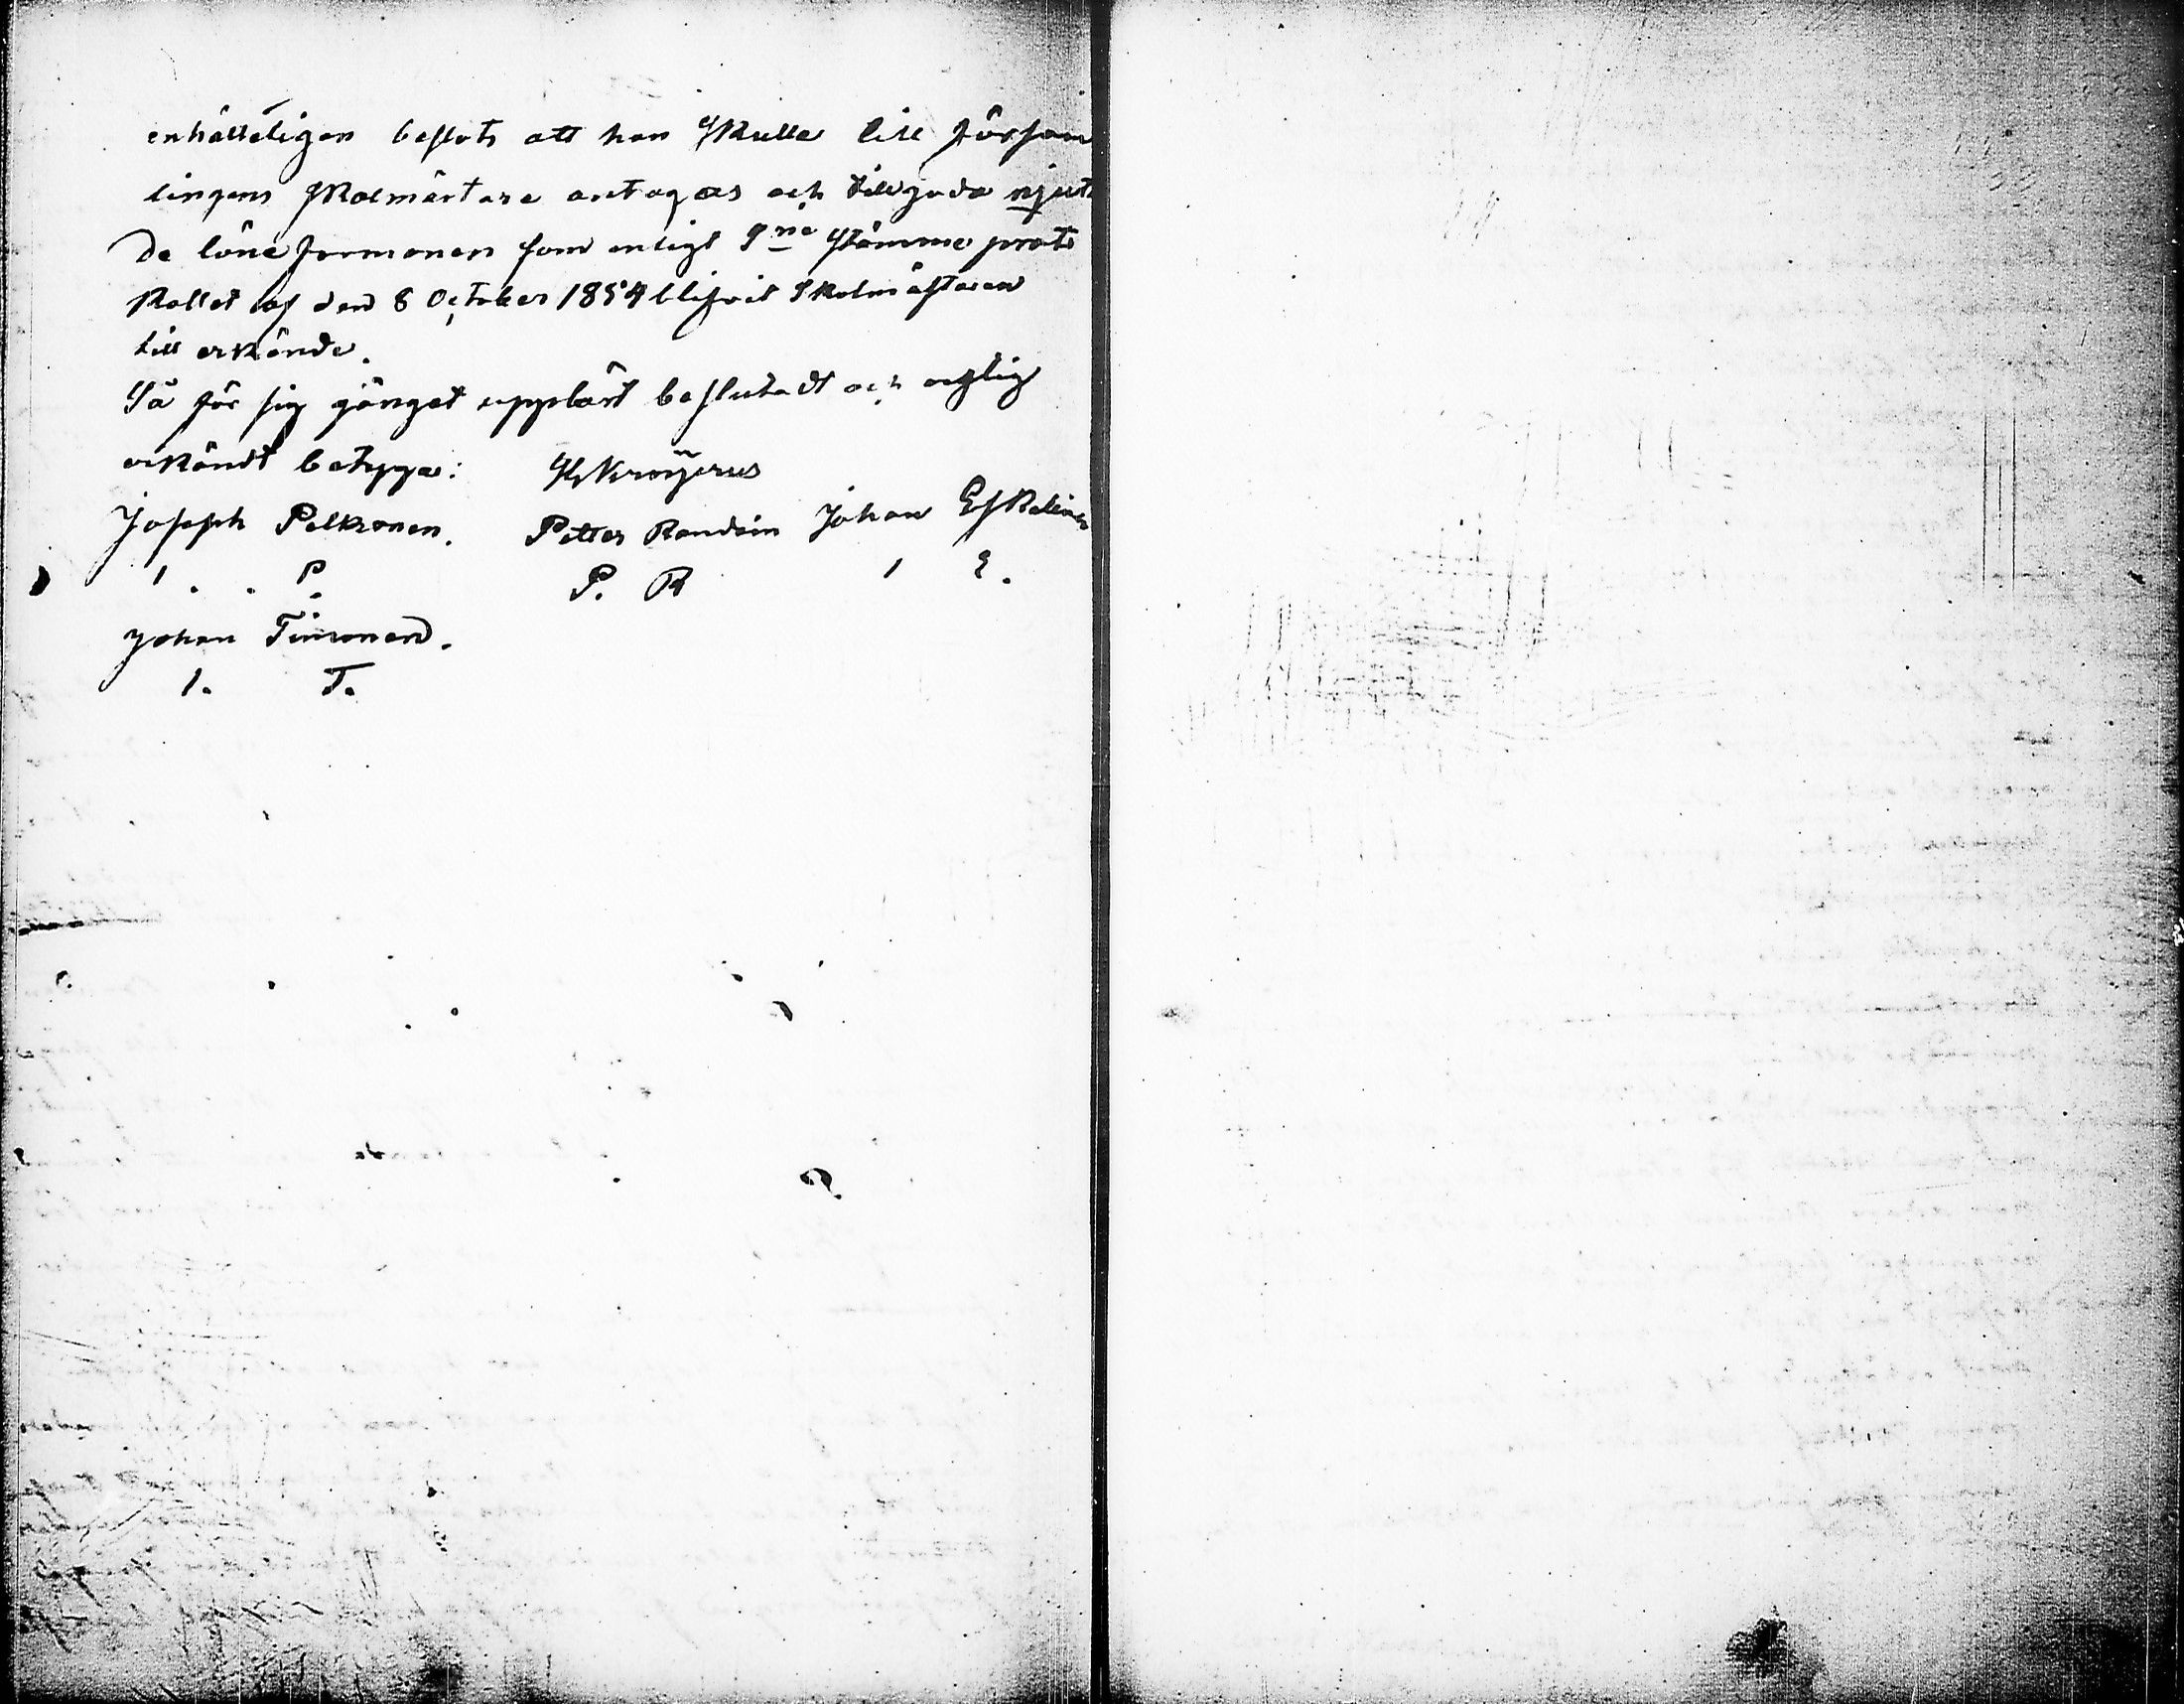 enhälleligen beslöts att han skulle till försam
lingens skolmästare antagas och tillgodo njut
de löne förmoner som enligt stämmo proto
kollet af den 8 October 1854 blifvit skolmästaren
till erkände.
Så för sig gånget uppläst beslutadt och
erkändt betyga:
Joseph Pelkonen. Petter Johan Eskelinen
I. P. P. R I E.
Johan Timonen.
I. T.